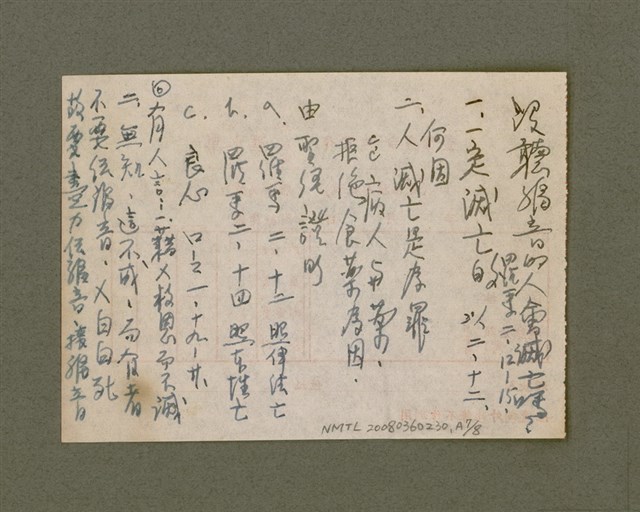 沒聽福音的人會滅亡嗎?
羅馬二、12-15、
一、一定滅亡的 以二、十二、
何因
二、人滅亡是為罪
病人與藥、
拒絕食藥為因、
由聖經證明
a、羅馬二、十二 照律法亡
b、羅馬二、十四 照本性亡
c、良心 ロ一、十九-廿、
◎有人言、一藉乂救恩而不滅
二、無知、這不成、而有者
不要伝福音、乂自自死
故要盡力伝福音、接福音
NMTL 20080360230, A7/8